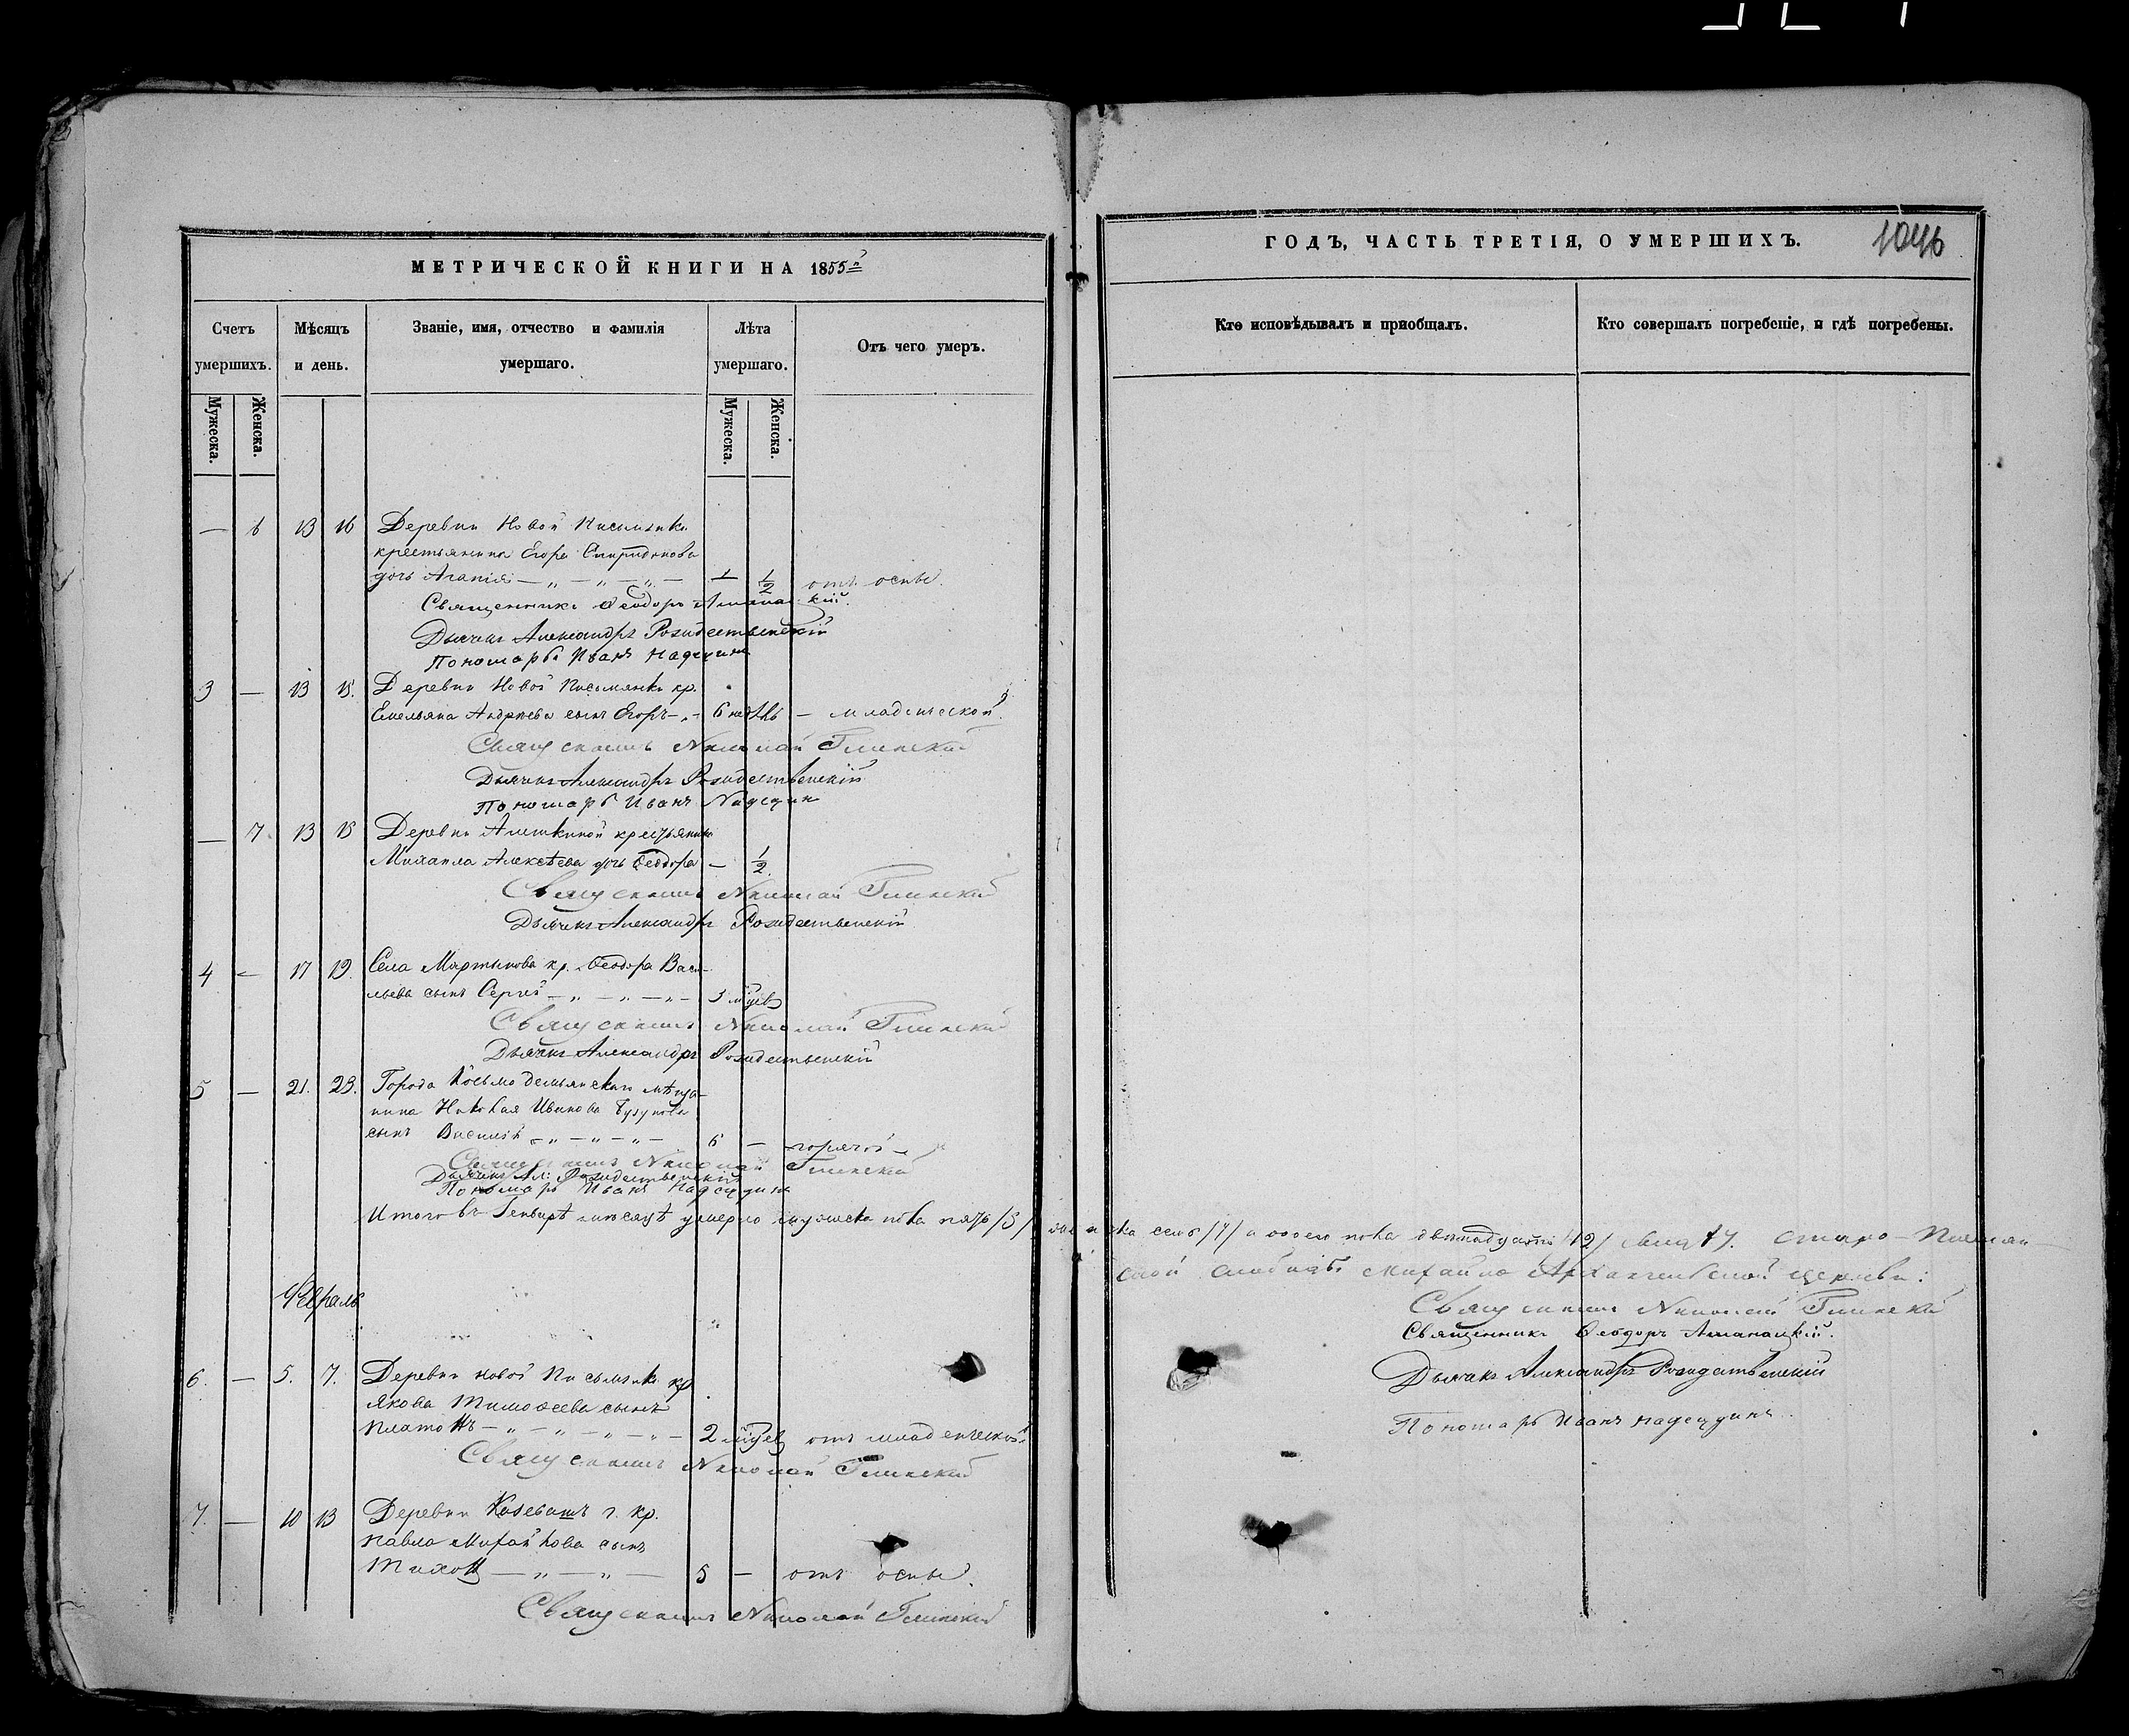 МЕТРИЧЕСКОЙ КНИГИ НА 1855й
Счетъ умершихъ.
Мѣсяцъ и день.
Званіе, имя, отчество и фамилія умершаго.
Лѣта умершаго.
Отъ чего умеръ.
Мужеска.
Женска.
Мужеска.
Женска.
— 6 13 16 Деревни Новой Письмянки
крестьянина Егора Спиридонова
дочь Агапія — „ — „ — „ — 1/2 отъ оспы.
Священникъ Ѳеодоръ
Дьячекъ Александръ Рождественскій
Пономарь Иванъ Надеждинъ
3 — 13 15. Деревни Новой Письмянки кр.
Емельяна Андреева сынъ Егоръ — „ — 6 недѣль — младенческой.
Священникъ Николай Глинскій
Дьячекъ Александръ Рождественскій
Пономарь Иванъ Надеждинъ
— 7. 13 15 Деревни Алешкиной крестьянина
Михаила Алексѣева дочь Ѳеодора — 1/2.
Священникъ Николай Глинскій
Дьячекъ Александръ Рождественскій
4 — 17 19. Села Мартынова кр. Ѳеодора Васи-
льева сынъ Сергѣй — „ — „ — „ — 3 мѣсяца
Священникъ Николай Глинскій
Дьячекъ Александръ Рождественскій
5 — 21. 23. Города Косьмодемьянскаго мѣща-
нина Николая Иванова
сынъ Василій — „ — „ — „ — 6 — горячкой
Священникъ Николай Глинскій
Дьячекъ Ал: Рождественскій
Пономарь Иванъ Надеждинъ
Итого въ Генварѣ мѣсяцѣ умерло мужеска пола пять /5/
Февраль
6. — 5. 7. Деревни Новой Письмянки кр.
Якова Тимоѳеева сынъ
Платонъ — „ — „ — „ — „ — 2 мѣсяца отъ младенческой
Священникъ Николай Глинскій
7. — 10 13 Деревни г. кр.
Павла Михайлова сынъ
Тихонъ — „ — „ — 5 — отъ оспы.
Священникъ Николай Глинскій
ГОДЪ, ЧАСТЬ ТРЕТІЯ, О УМЕРШИХЪ.
1046
Кто исповѣдывалъ и пріобщалъ.
Кто совершалъ погребеніе, и гдѣ погребены.
женска семь /7/ а обоего пола двѣнадцать /12/ Старо-Письмян
ской слободы Михайло Архангельской церкви:
Священникъ Николай Глинскій
Священникъ Ѳеодоръ
Дьячекъ Александръ Рождественскій
Пономарь Иванъ Надеждинъ